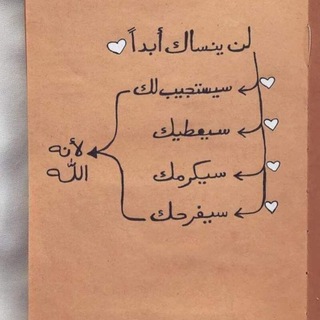 لن ينساك أبداً
سيستجيب لك
سيعطيك
سيكرمك
سيفرحك
لأنه
الله